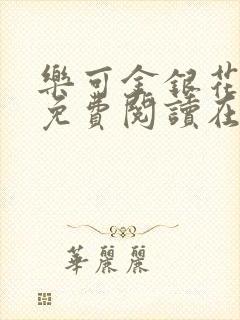 樂可金銀花
免費閱讀在
華麗麗